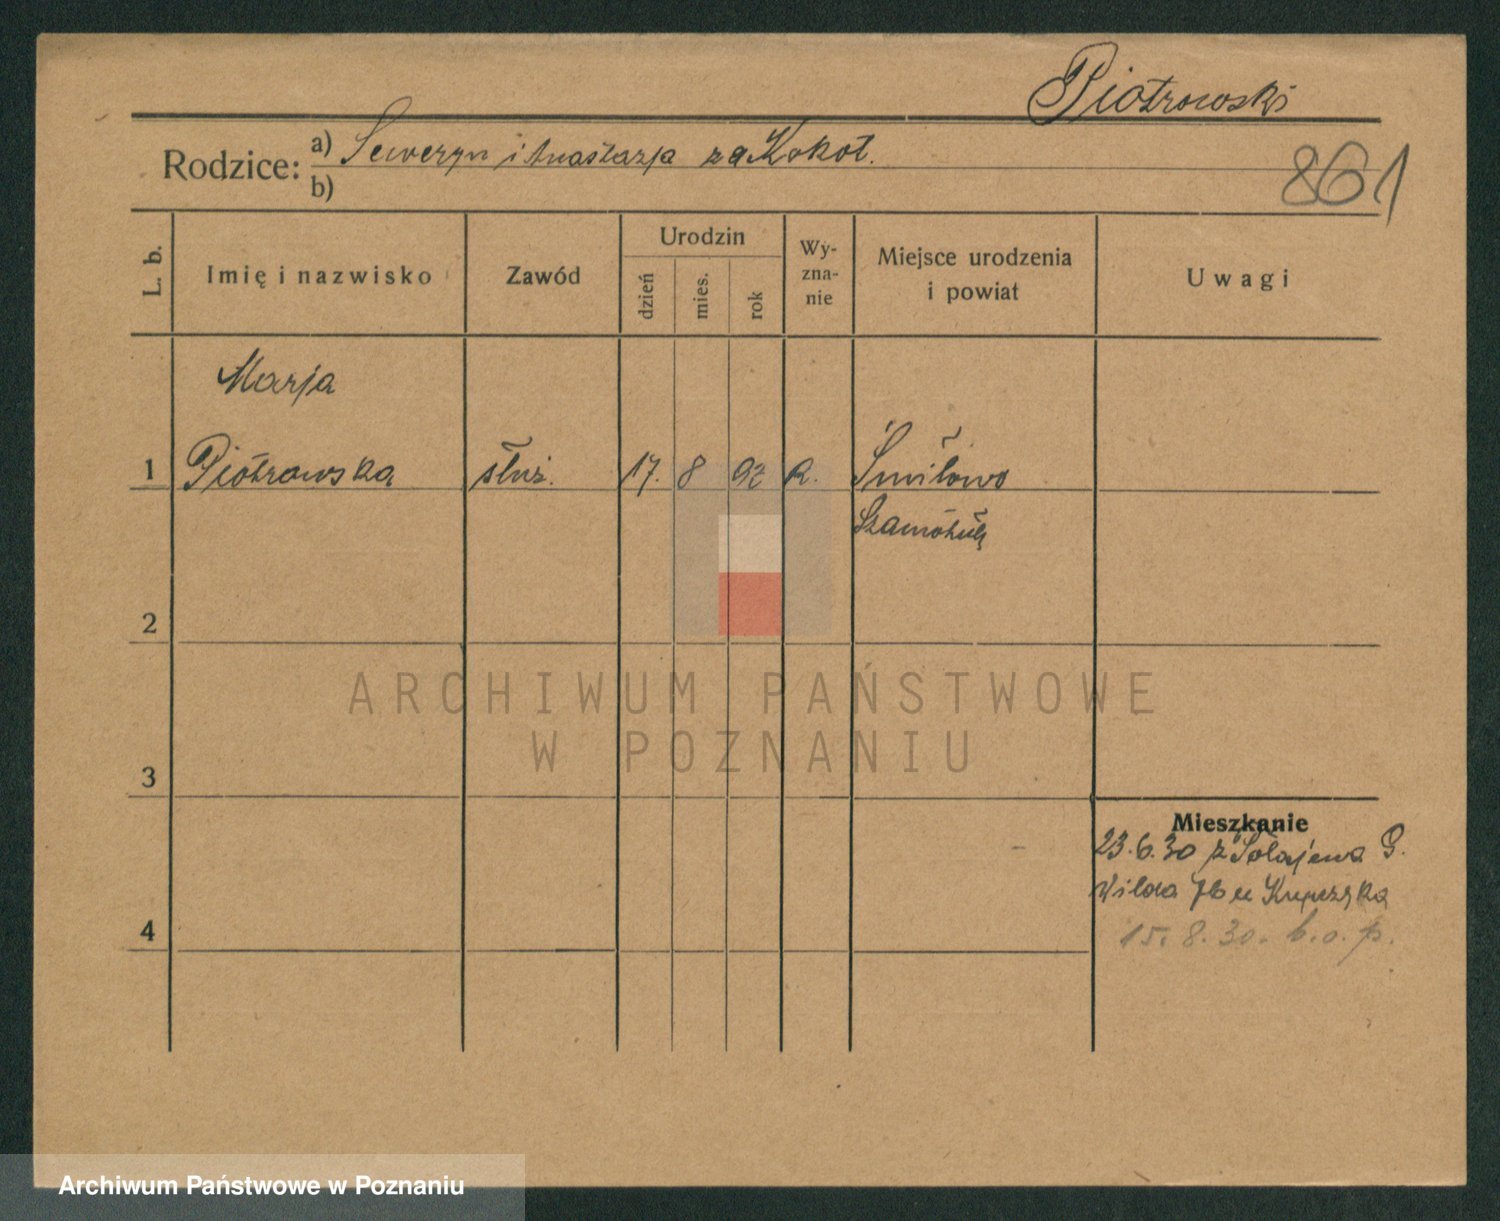 Piotrowski
Rodzice: a) Seweryn i Anastazja za Kokot.
b)
861
L. b.
Imię i nazwisko
Zawód
Urodzin
dzień
mies.
rok
Wy-
zna-
nie
Miejsce urodzenia
i powiat
Uwagi
Marja
1 Piotrowska służ. 17. 8 92 R. Śmiłowo
Szamotuły
2
ARCHIWUM PAŃSTWOWE
W POZNANIU
3
Mieszkanie
23.6.30 z
Wilda 76 u
4
15. 8. 30. b. o. p.
Archiwum Państwowe w Poznaniu